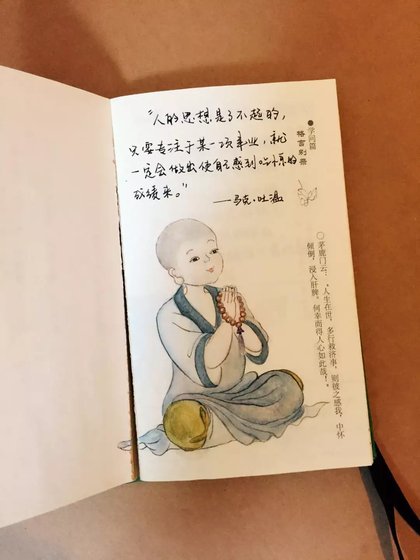 "人的思想是了不起的，
只要专注于某一项事业，就
一定会做出使自己感到吃惊的
成绩来。"
——马克·吐温
●学问篇
格言别录
○茅鹿门云：“人生在世，多行救济事，则彼之感我，中怀
倾倒，浸入肝脾。何幸而得人心如此哉！”